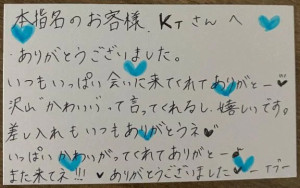 本指名のお客様. KTさんへ
ありがとうございました。
いつもいっぱい会いに来てくれてありがとー♡
沢山"かわいい"って言ってくれるし、嬉しいです。
差し入れもいつもありがとうネ♥
いっぱいかわいがってくれてありがとー♪
また来てネ!!! ♥ありがとうございました♥